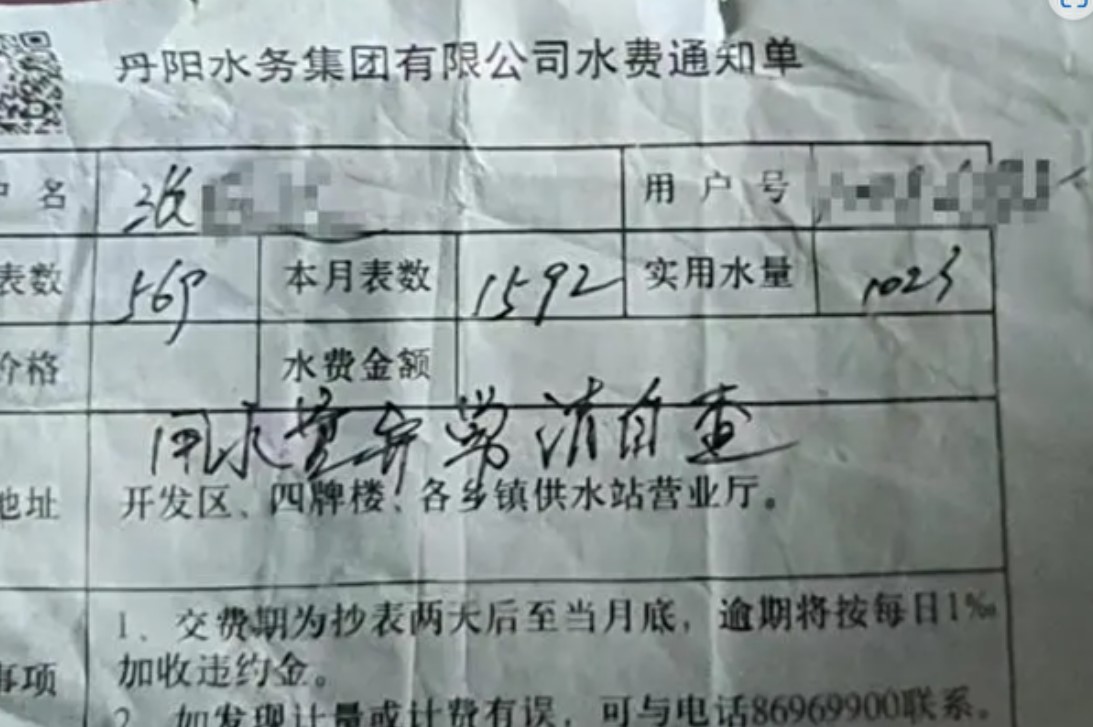 丹阳水务集团有限公司水费通知单
户名 张 用户号
表数 569 本月表数 1592 实用水量 1023
价格 水费金额
用水量异常 请自查
地址 开发区、四牌楼、各乡镇供水站营业厅。
1、交费期为抄表两天后至当月底，逾期将按每日1‰
事项 加收违约金。
2、如发现计量或计费有误，可与电话86969900联系。